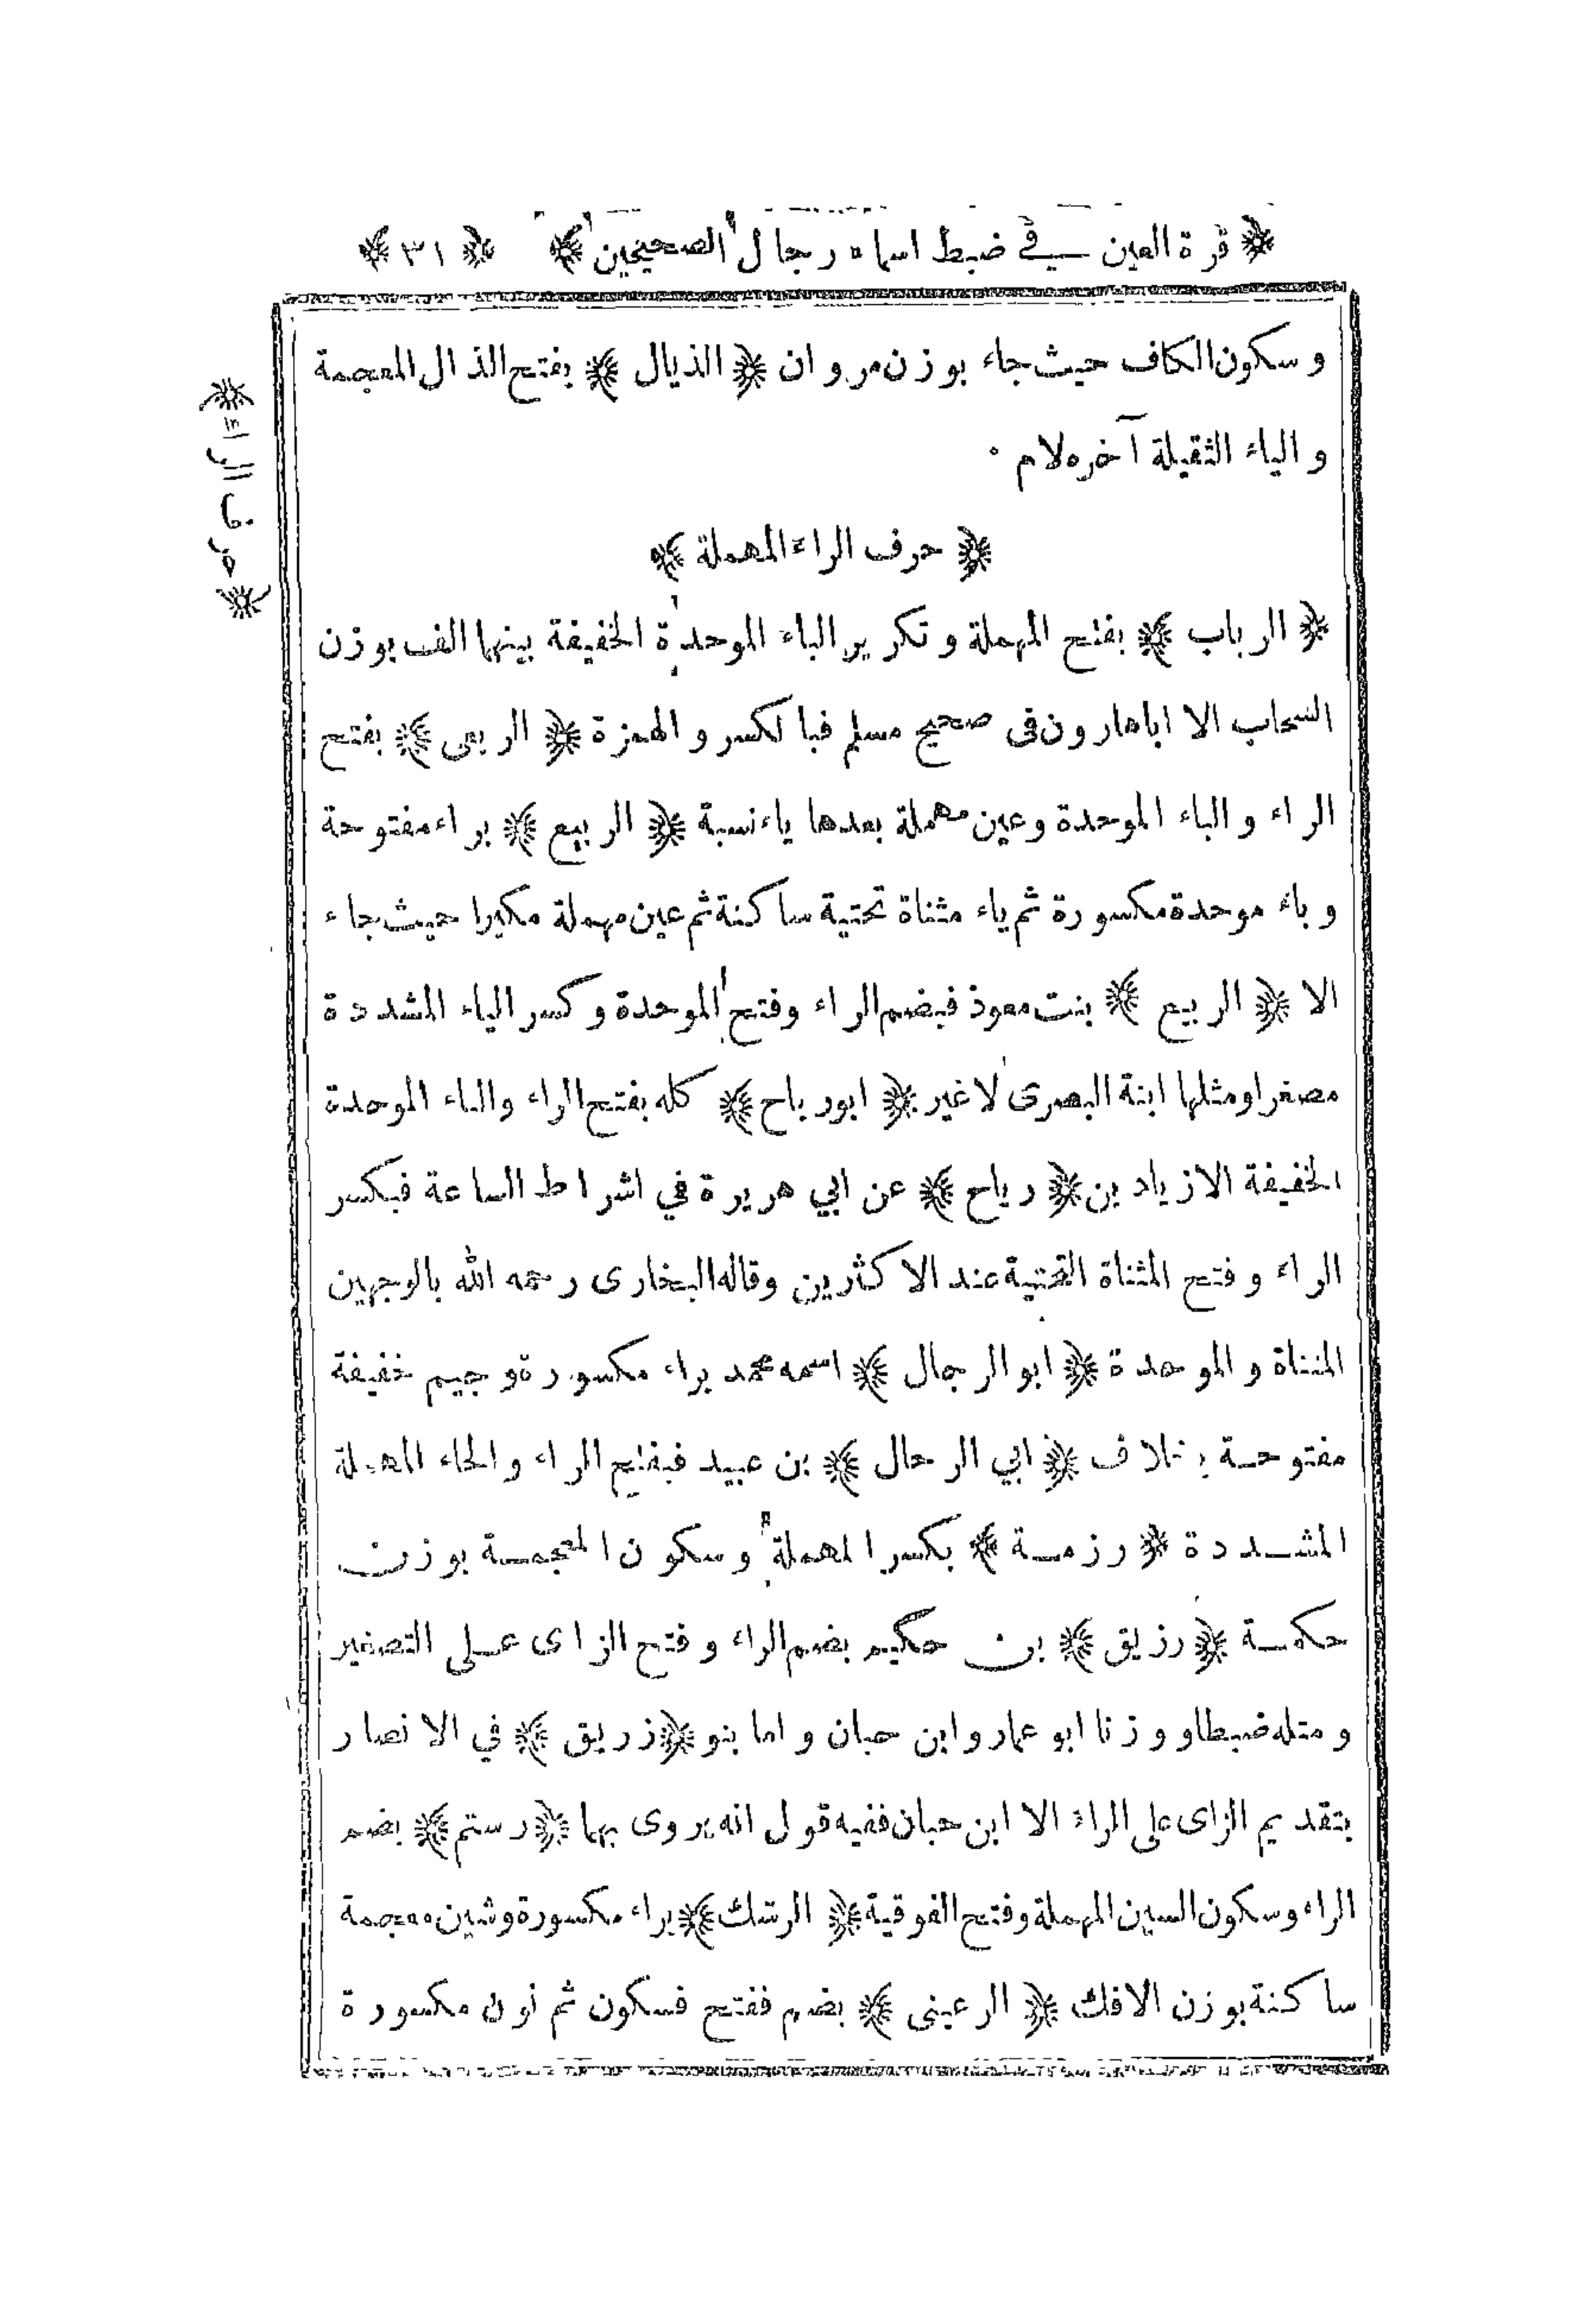 ﴿ قرة العين في ضبط اسماء رجال الصحيحين ﴾ ﴿ ٣١ ﴾
وسكون الكاف حيث جاء بوزن مروان ﴿ الذيال ﴾ بفتح الذال المعجمة
والياء الثقيلة آخره لام ٠
﴿ حرف الراء المهملة ﴾
﴿ حرف الراء ﴾
﴿ الرباب ﴾ بفتح المهملة وتكرير الباء الموحدة الخفيفة بينهما الف بوزن
السحاب الا اباهارون فى صحيح مسلم فبالكسر والهمزة ﴿ الربعى ﴾ بفتح
الراء والباء الموحدة وعين مهملة بعدها ياء نسبة ﴿ الربيع ﴾ براء مفتوحة
وباء موحدة مكسورة ثم ياء مثناة تحتية ساكنة ثم عين مهملة مكبرا حيث جاء
الا ﴿ الربيع ﴾ بنت معوذ فبضم الراء وفتح الموحدة وكسر الياء المشددة
مصغرا ومثلها ابنة البصرى لا غير ﴿ ابورباح ﴾ كله بفتح الراء والباء الموحدة
الخفيفة الا زياد بن ﴿ رياح ﴾ عن ابي هريرة في اشراط الساعة فبكسر
الراء وفتح المثناة التحتية عند الاكثرين وقاله البخارى رحمه الله بالوجهين
المثناة والموحدة ﴿ ابو الرجال ﴾ اسمه محمد براء مكسورة وجيم خفيفة
مفتوحة بخلاف ﴿ ابي الرحال ﴾ بن عبيد فبفتح الراء والحاء المهملة
المشددة ﴿ رزمة ﴾ بكسر المهملة وسكون المعجمة بوزن
حكمة ﴿ رزيق ﴾ بن حكيم بضم الراء وفتح الزاى على التصغير
ومثله ضبطا ووزنا ابو عمار وابن حبان واما بنو ﴿ زريق ﴾ في الانصار
بتقديم الزاى على الراء الا ابن حبان ففيه قول انه يروى بهما ﴿ رستم ﴾ بضم
الراء وسكون السين المهملة وفتح الفوقية ﴿ الرشك ﴾ براء مكسورة وشين معجمة
ساكنة بوزن الافك ﴿ الرعينى ﴾ بضم ففتح فسكون ثم نون مكسورة